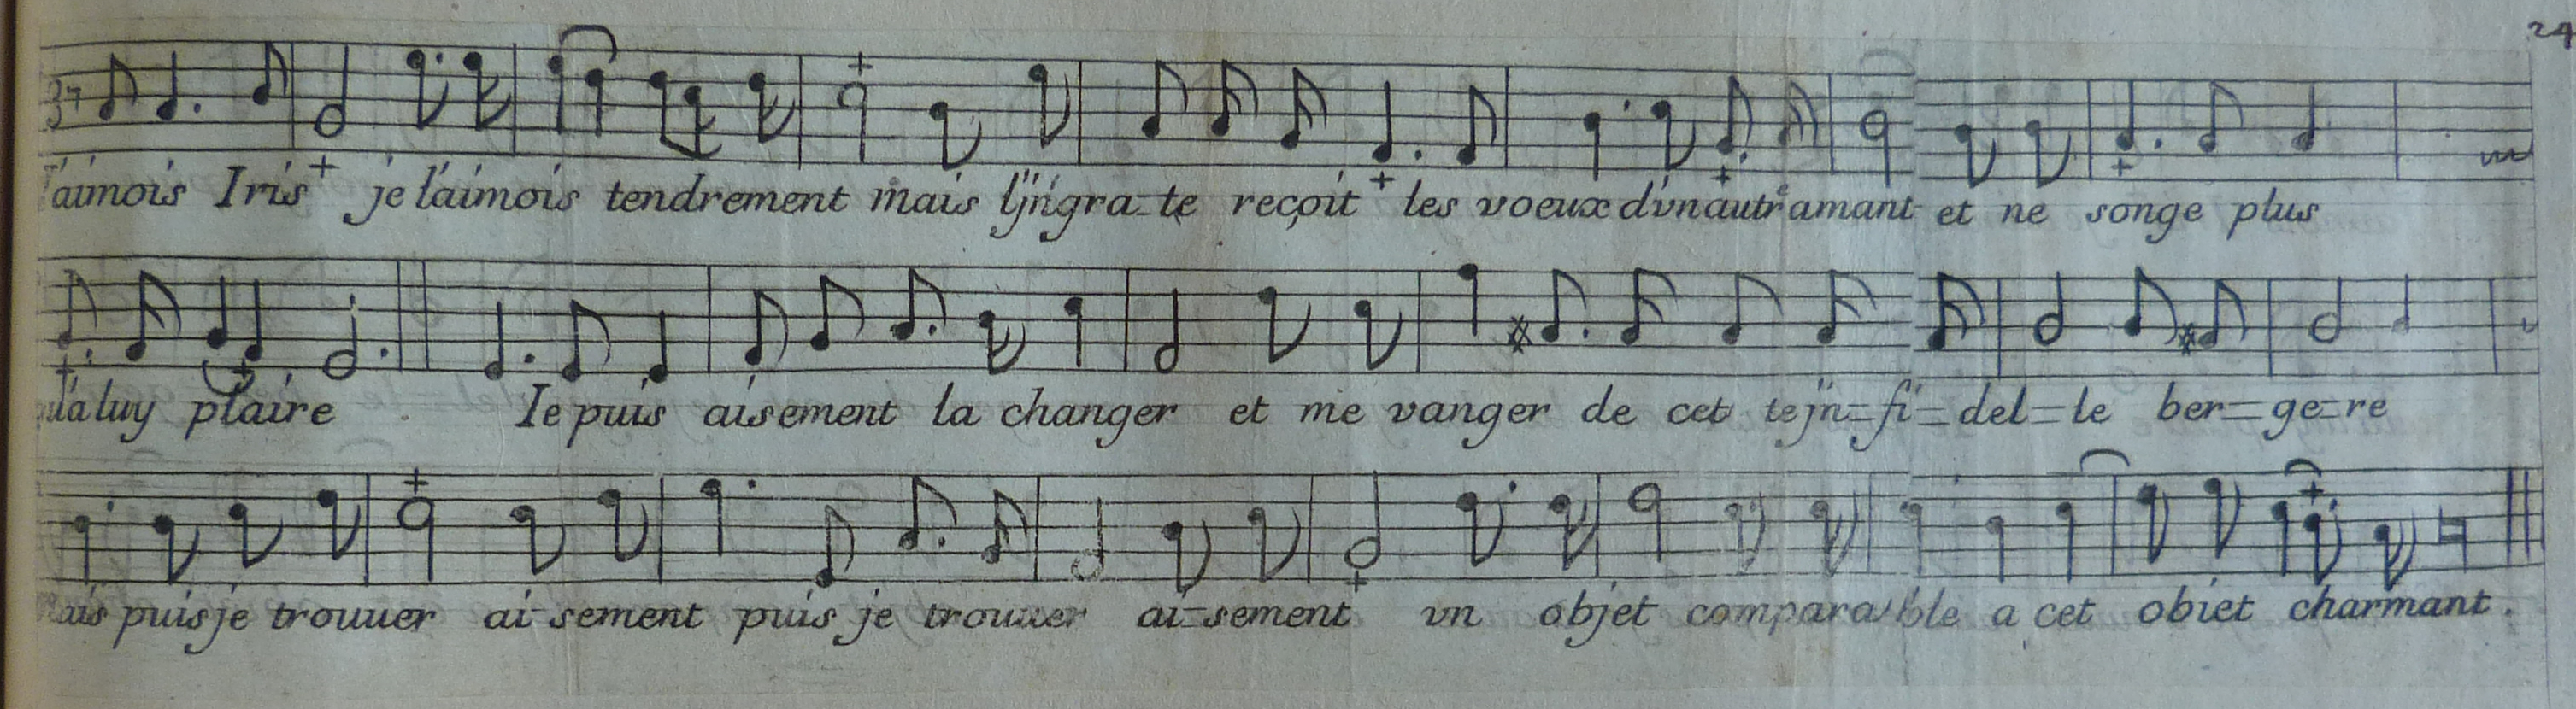 24
3
l'aimois Iris je l'aimois tendrement mais l'jngra-te reçoit les voeux d'vn autre amant et ne songe plus
qu'a luy plaire. Ie puis aisement la changer et me vanger de cet te jn=fi=del=le ber=ge=re
Mais puis je trouuer ai-sement puis je trouuer ai=sement vn objet comparable a cet obiet charmant.